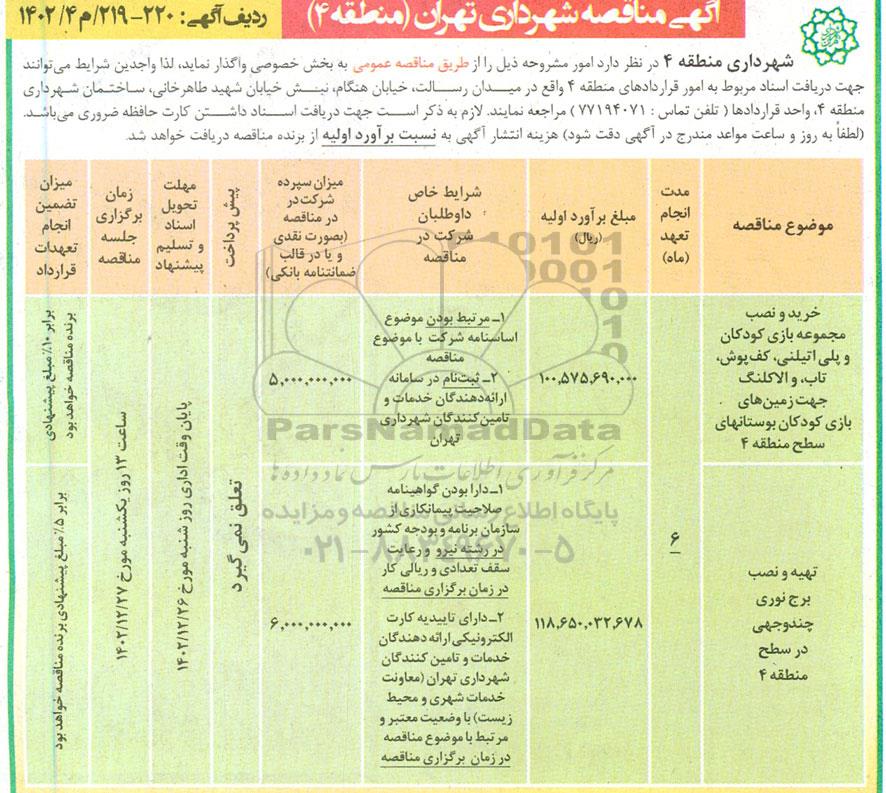 آگهی مناقصه شهرداری تهران (منطقه ۴)
ردیف آگهی: ۲۲۰-۲۱۹/م ۴/ ۱۴۰۲
شهرداری منطقه ۴ در نظر دارد امور مشروحه ذیل را از طریق مناقصه عمومی به بخش خصوصی واگذار نماید، لذا واجدین شرایط می‌توانند
جهت دریافت اسناد مربوط به امور قراردادهای منطقه ۴ واقع در میدان رسالت، خیابان هنگام، نبش خیابان شهید طاهرخانی، ساختمان شهرداری
منطقه ۴، واحد قراردادها ( تلفن تماس : ۷۷۱۹۴۰۷۱ ) مراجعه نمایند. لازم به ذکر است جهت دریافت اسناد داشتن کارت حافظه ضروری می‌باشد.
(لطفاً به روز و ساعت مواعد مندرج در آگهی دقت شود) هزینه انتشار آگهی به نسبت برآورد اولیه از برنده مناقصه دریافت خواهد شد.
موضوع مناقصه
مدت
انجام
تعهد
(ماه)
مبلغ برآورد اولیه
(ریال)
شرایط خاص
داوطلبان
شرکت در
مناقصه
میزان سپرده
شرکت در
در مناقصه
(بصورت نقدی
و یا در قالب
ضمانتنامه بانکی)
پیش پرداخت
مهلت
تحویل
اسناد
و تسلیم
پیشنهاد
زمان
برگزاری
جلسه
مناقصه
میزان
تضمین
انجام
تعهدات
قرارداد
خرید و نصب
مجموعه بازی کودکان
و پلی اتیلنی، کف‌پوش،
تاب، و الاکلنگ
جهت زمین‌های
بازی کودکان بوستانهای
سطح منطقه ۴
۶
۱۰۰,۵۷۵,۶۹۰,۰۰۰
۱ـ مرتبط بودن موضوع
اساسنامه شرکت با موضوع
مناقصه
۲ـ ثبت‌نام در سامانه
ارائه‌دهندگان خدمات و
تامین‌کنندگان شهرداری
تهران
۵,۰۰۰,۰۰۰,۰۰۰
تعلق نمی گیرد
پایان وقت اداری روز شنبه مورخ ۱۴۰۲/۱۲/۲۶
ساعت ۱۳ روز یکشنبه مورخ ۱۴۰۲/۱۲/۲۷
برابر ۱۰٪ مبلغ پیشنهادی
برنده مناقصه خواهد بود
تهیه و نصب
برج نوری
چندوجهی
در سطح
منطقه ۴
۱۱۸,۶۵۰,۰۳۲,۶۷۸
۱ـ دارا بودن گواهینامه
صلاحیت پیمانکاری از
سازمان برنامه و بودجه کشور
در رشته نیرو و رعایت
سقف تعدادی و ریالی کار
در زمان برگزاری مناقصه
۲ـ دارای تاییدیه کارت
الکترونیکی ارائه دهندگان
خدمات و تامین کنندگان
شهرداری تهران (معاونت
خدمات شهری و محیط
زیست) با وضعیت معتبر و
مرتبط با موضوع مناقصه
در زمان برگزاری مناقصه
۶,۰۰۰,۰۰۰,۰۰۰
برابر ۵٪ مبلغ پیشنهادی برنده مناقصه خواهد بود
ParsNamadData
مرکز فرآوری اطلاعات پارس نماد داده‌ها
پایگاه اطلاع رسانی مناقصه و مزایده
۰۲۱-۸۸۳۴۹۶۷۰-۵